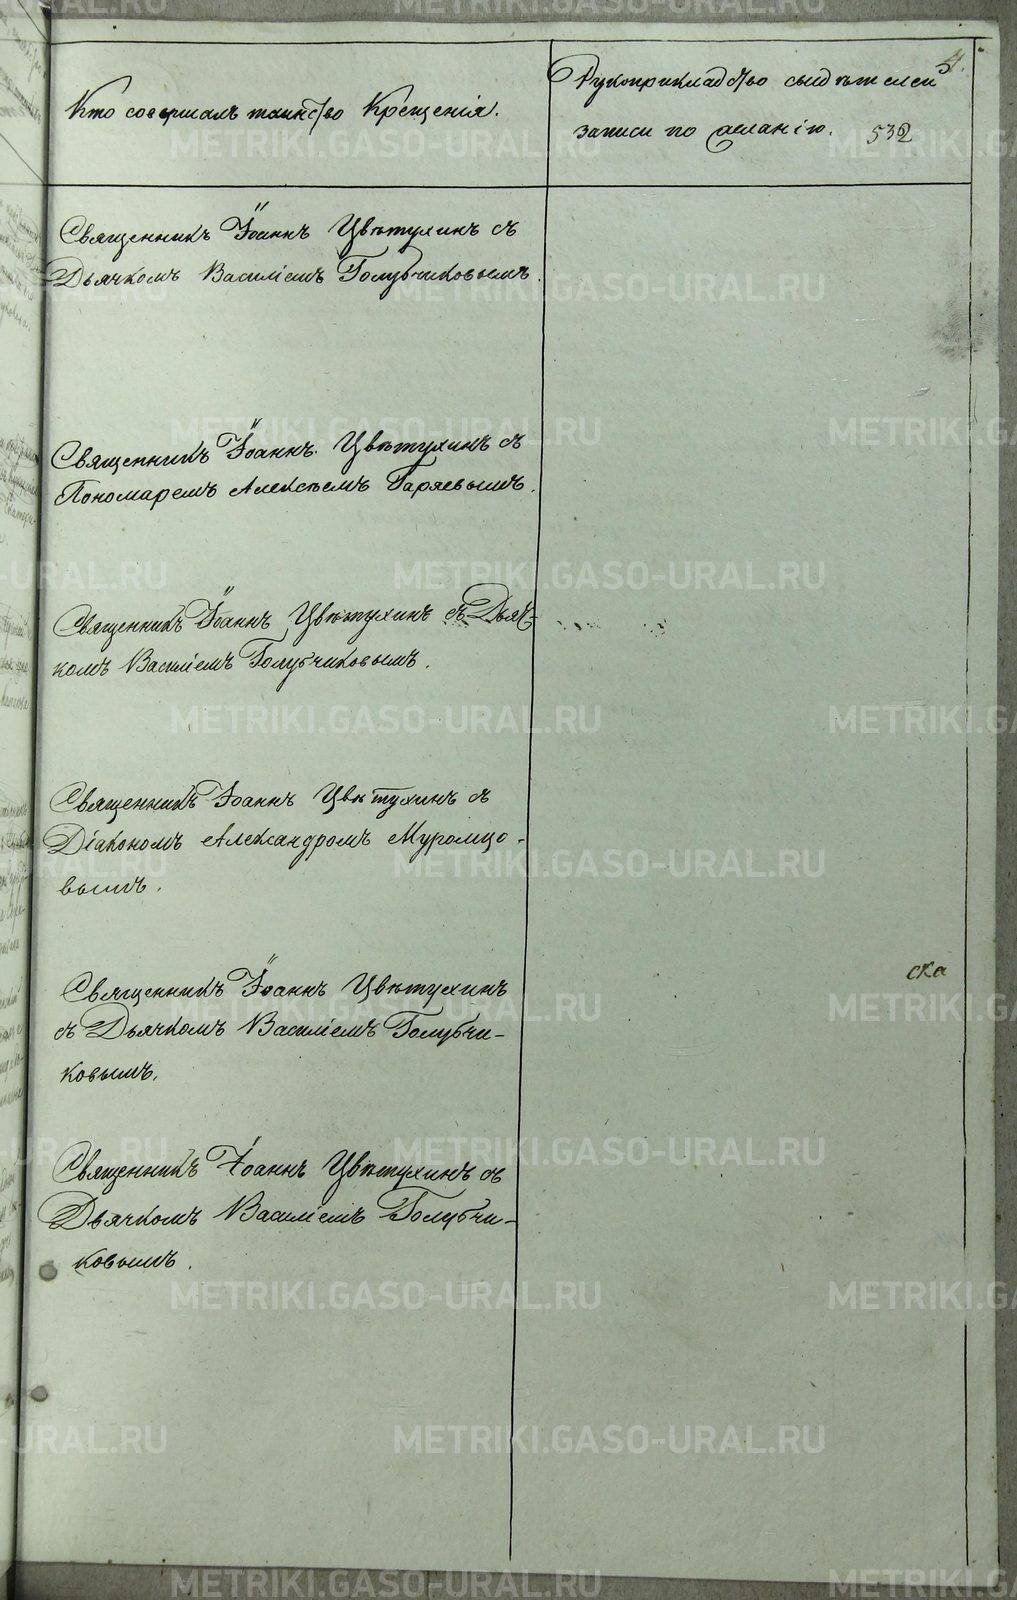 Кто совершалъ таинство Крещенія.
Рукоприкладство свидѣтелей
записи по желанію.
4.
532
Священникъ Іоаннъ Цвѣтухинъ съ
Дьячкомъ Василіемъ Голубчиковымъ.
Священникъ Іоаннъ Цвѣтухинъ съ
Пономаремъ Алексѣемъ Гаряевымъ.
Священникъ Іоаннъ Цвѣтухинъ съ Дьяч-
комъ Василіемъ Голубчиковымъ.
Священникъ Іоаннъ Цвѣтухинъ съ
Діакономъ Александромъ Муромцо-
вымъ.
Священникъ Іоаннъ Цвѣтухинъ
съ Дьячкомъ Василіемъ Голубчи-
ковымъ.
ска
Священникъ Іоаннъ Цвѣтухинъ съ
Дьячкомъ Василіемъ Голубчи-
ковымъ.
METRIKI.GASO-URAL.RU